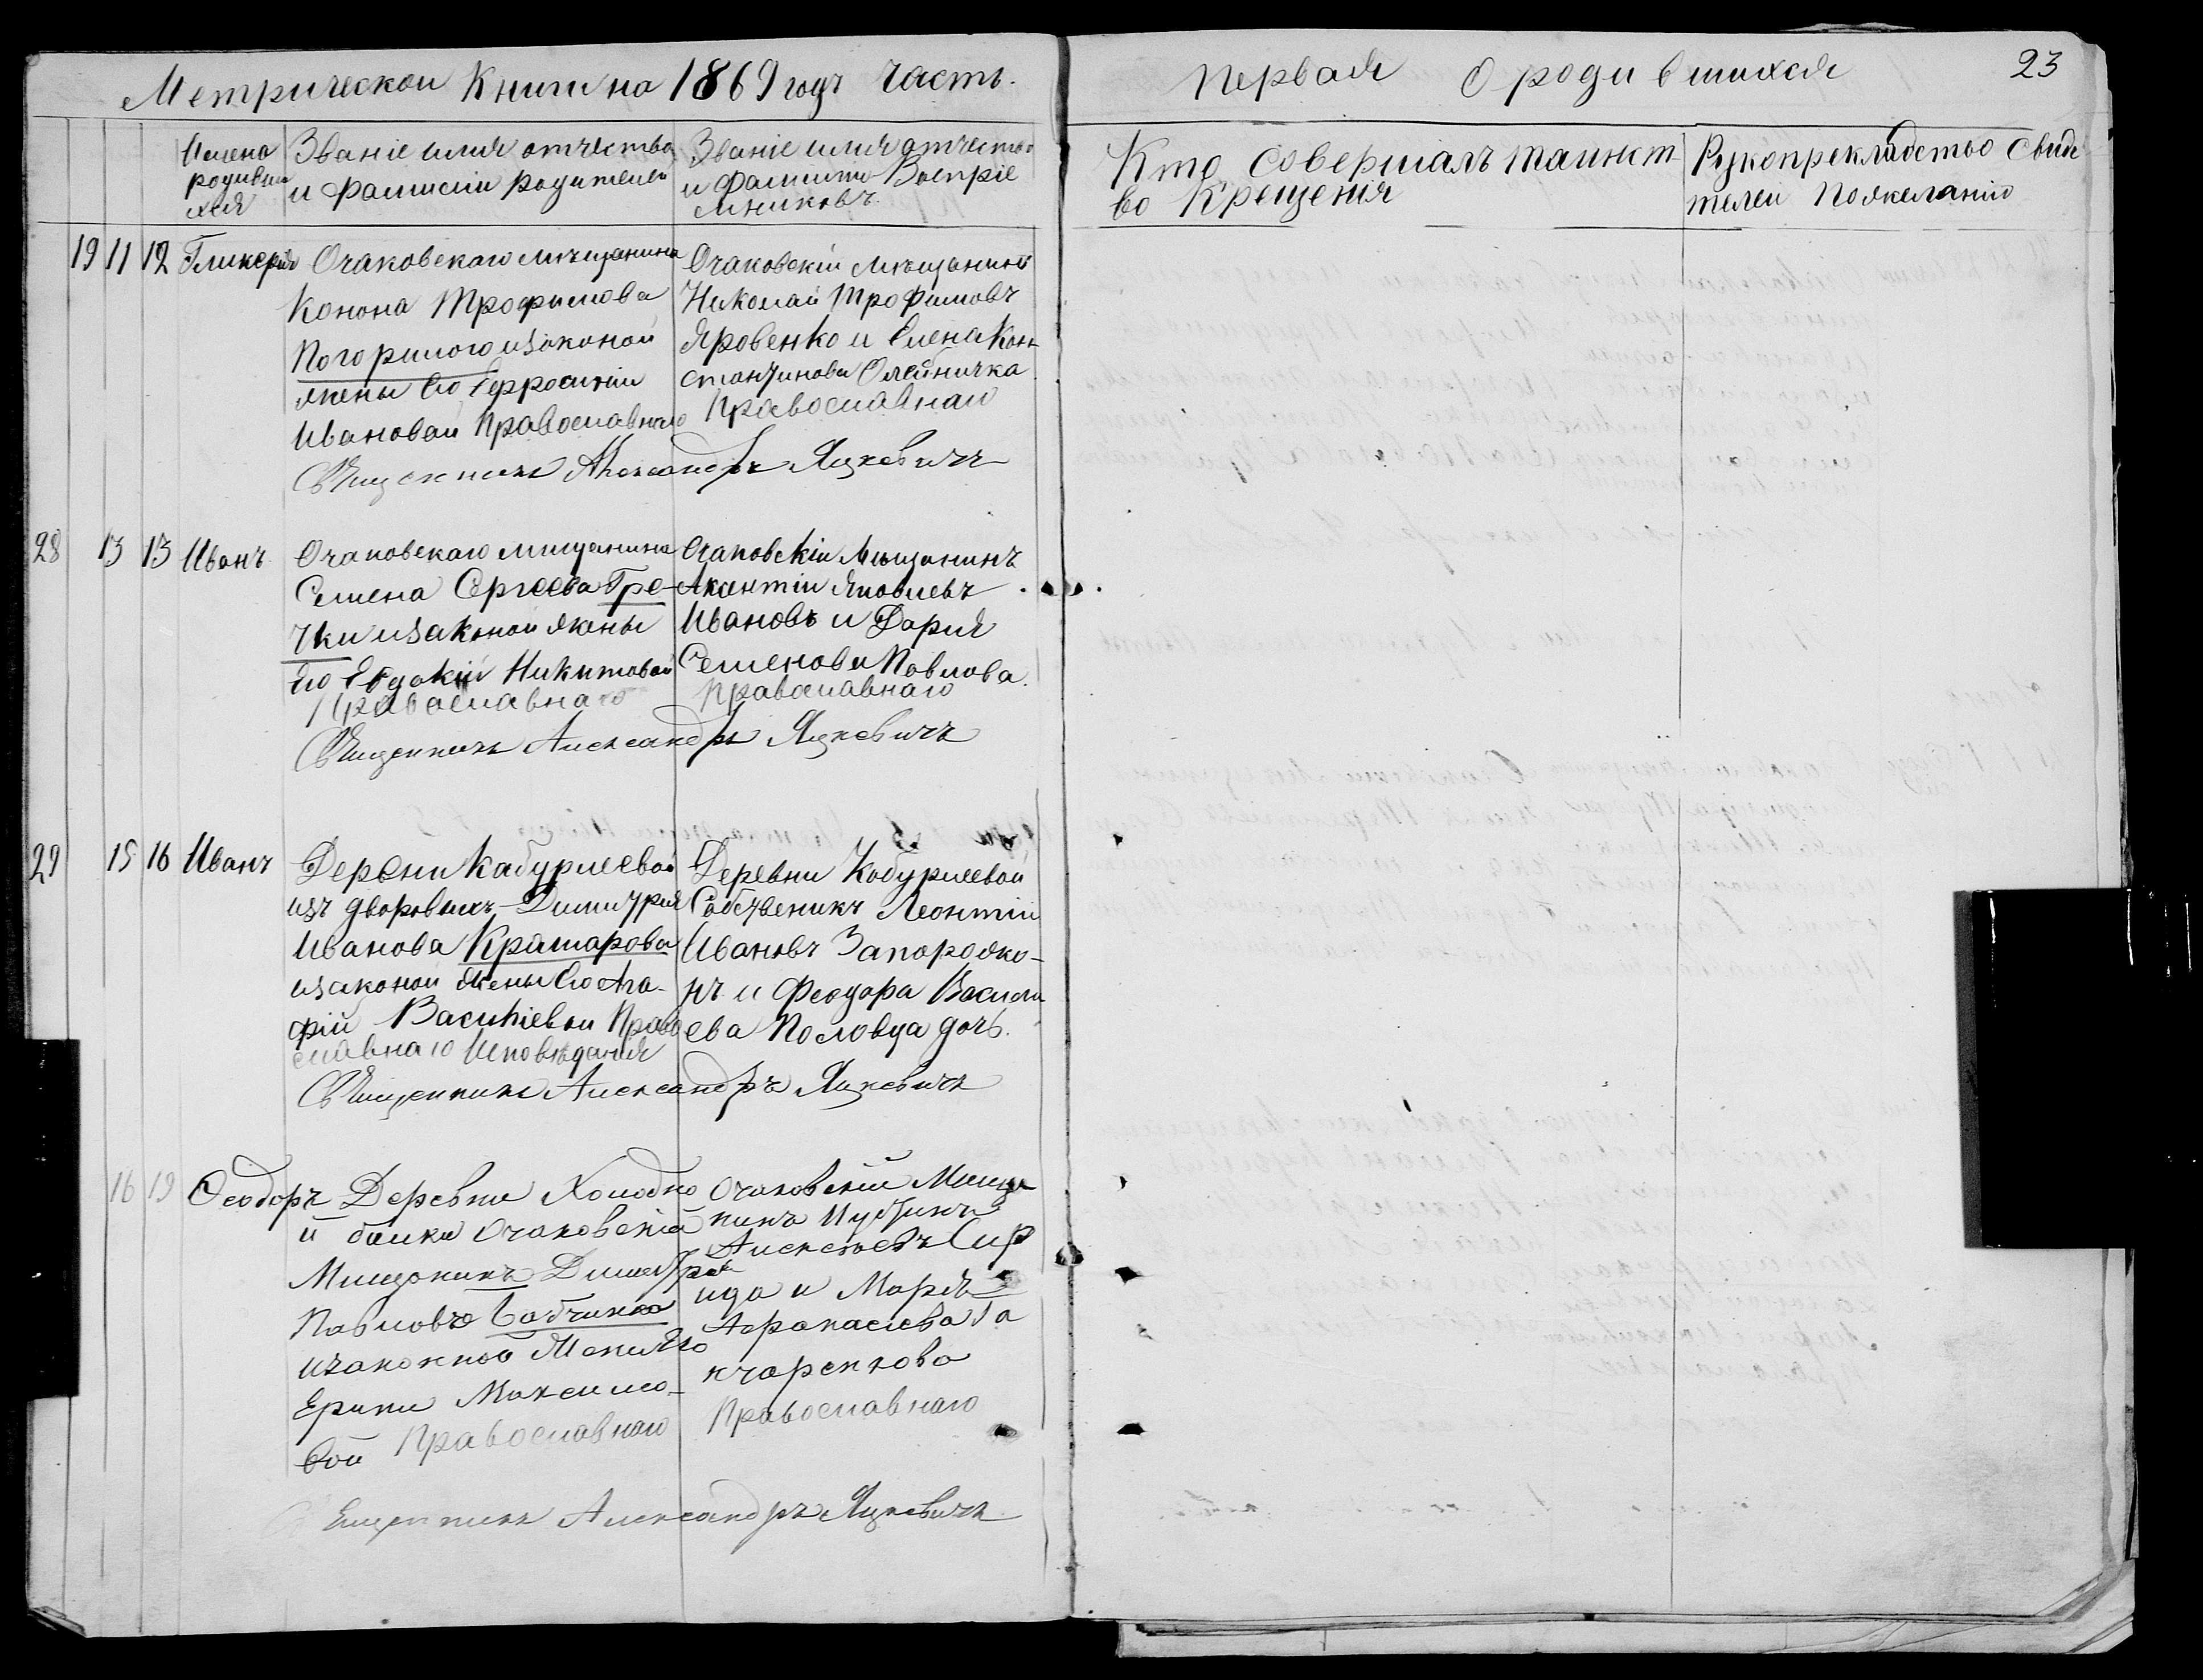 Метрической Книги на 1869 годъ часть.
первая О родившихся 23
Имена родивши хся
Званіе имя отчество и фамиліи родителей
Званіе имя отчество и Фамилии Воспріе мниковъ.
Кто Совершалъ таинст во Крещения
Рукоприкладство свиде телей По желанію
19 11 12 Гликерія
Очаковскаго мѣщанина
Конона Трофимова
Погорилого изаконой
жены Его Ефросиніи
Ивановой Православнаго
Очаковскій мѣщанинъ
Николай Трофимовъ
Яровенко и Елена Кон-
стантинова Олейничка
Православнаго
Священникъ Александръ Яцкевичъ
28 13 13 Иванъ
Очаковскаго мищанина
Семена Сергеева Гре-
чки изаконой жены
Его Евдокіи Никитовой
Православнаго
Очаковскій Мѣщанинъ
Акентіи Яковлевъ
Ивановъ и Дарія
Семенова Павлова.
Православнаго
Священникъ Александръ Яцкевичъ
29 15 16 Иванъ
Деревни Кабурлеевой
изъ дворовыхъ Димитрия
Иванова Крамарова
изаконой жены Его Ага-
фіи Василіевои Право
славнаго Исповѣдания
Деревни Кобурлеевой
Собственикъ Леонтіи
Ивановъ Запорожко-
къ и Феодора Васили
ева Половца дочь.
Священникъ Александръ Яцкевичъ
16 19 Феодоръ
Деревни Холодно
й балки Очаковскій
Мищанинъ Димитрій
Павловъ Бабчинко
изаконной Жени Его
Ерини Максимо-
вой Православнаго
Очаковскій Мища
нинъ
Алексѣевъ Сир
ида и Марѳа
Афанасіева Га
нчаренкова
Православнаго
Священникъ Александръ Яцкевичъ